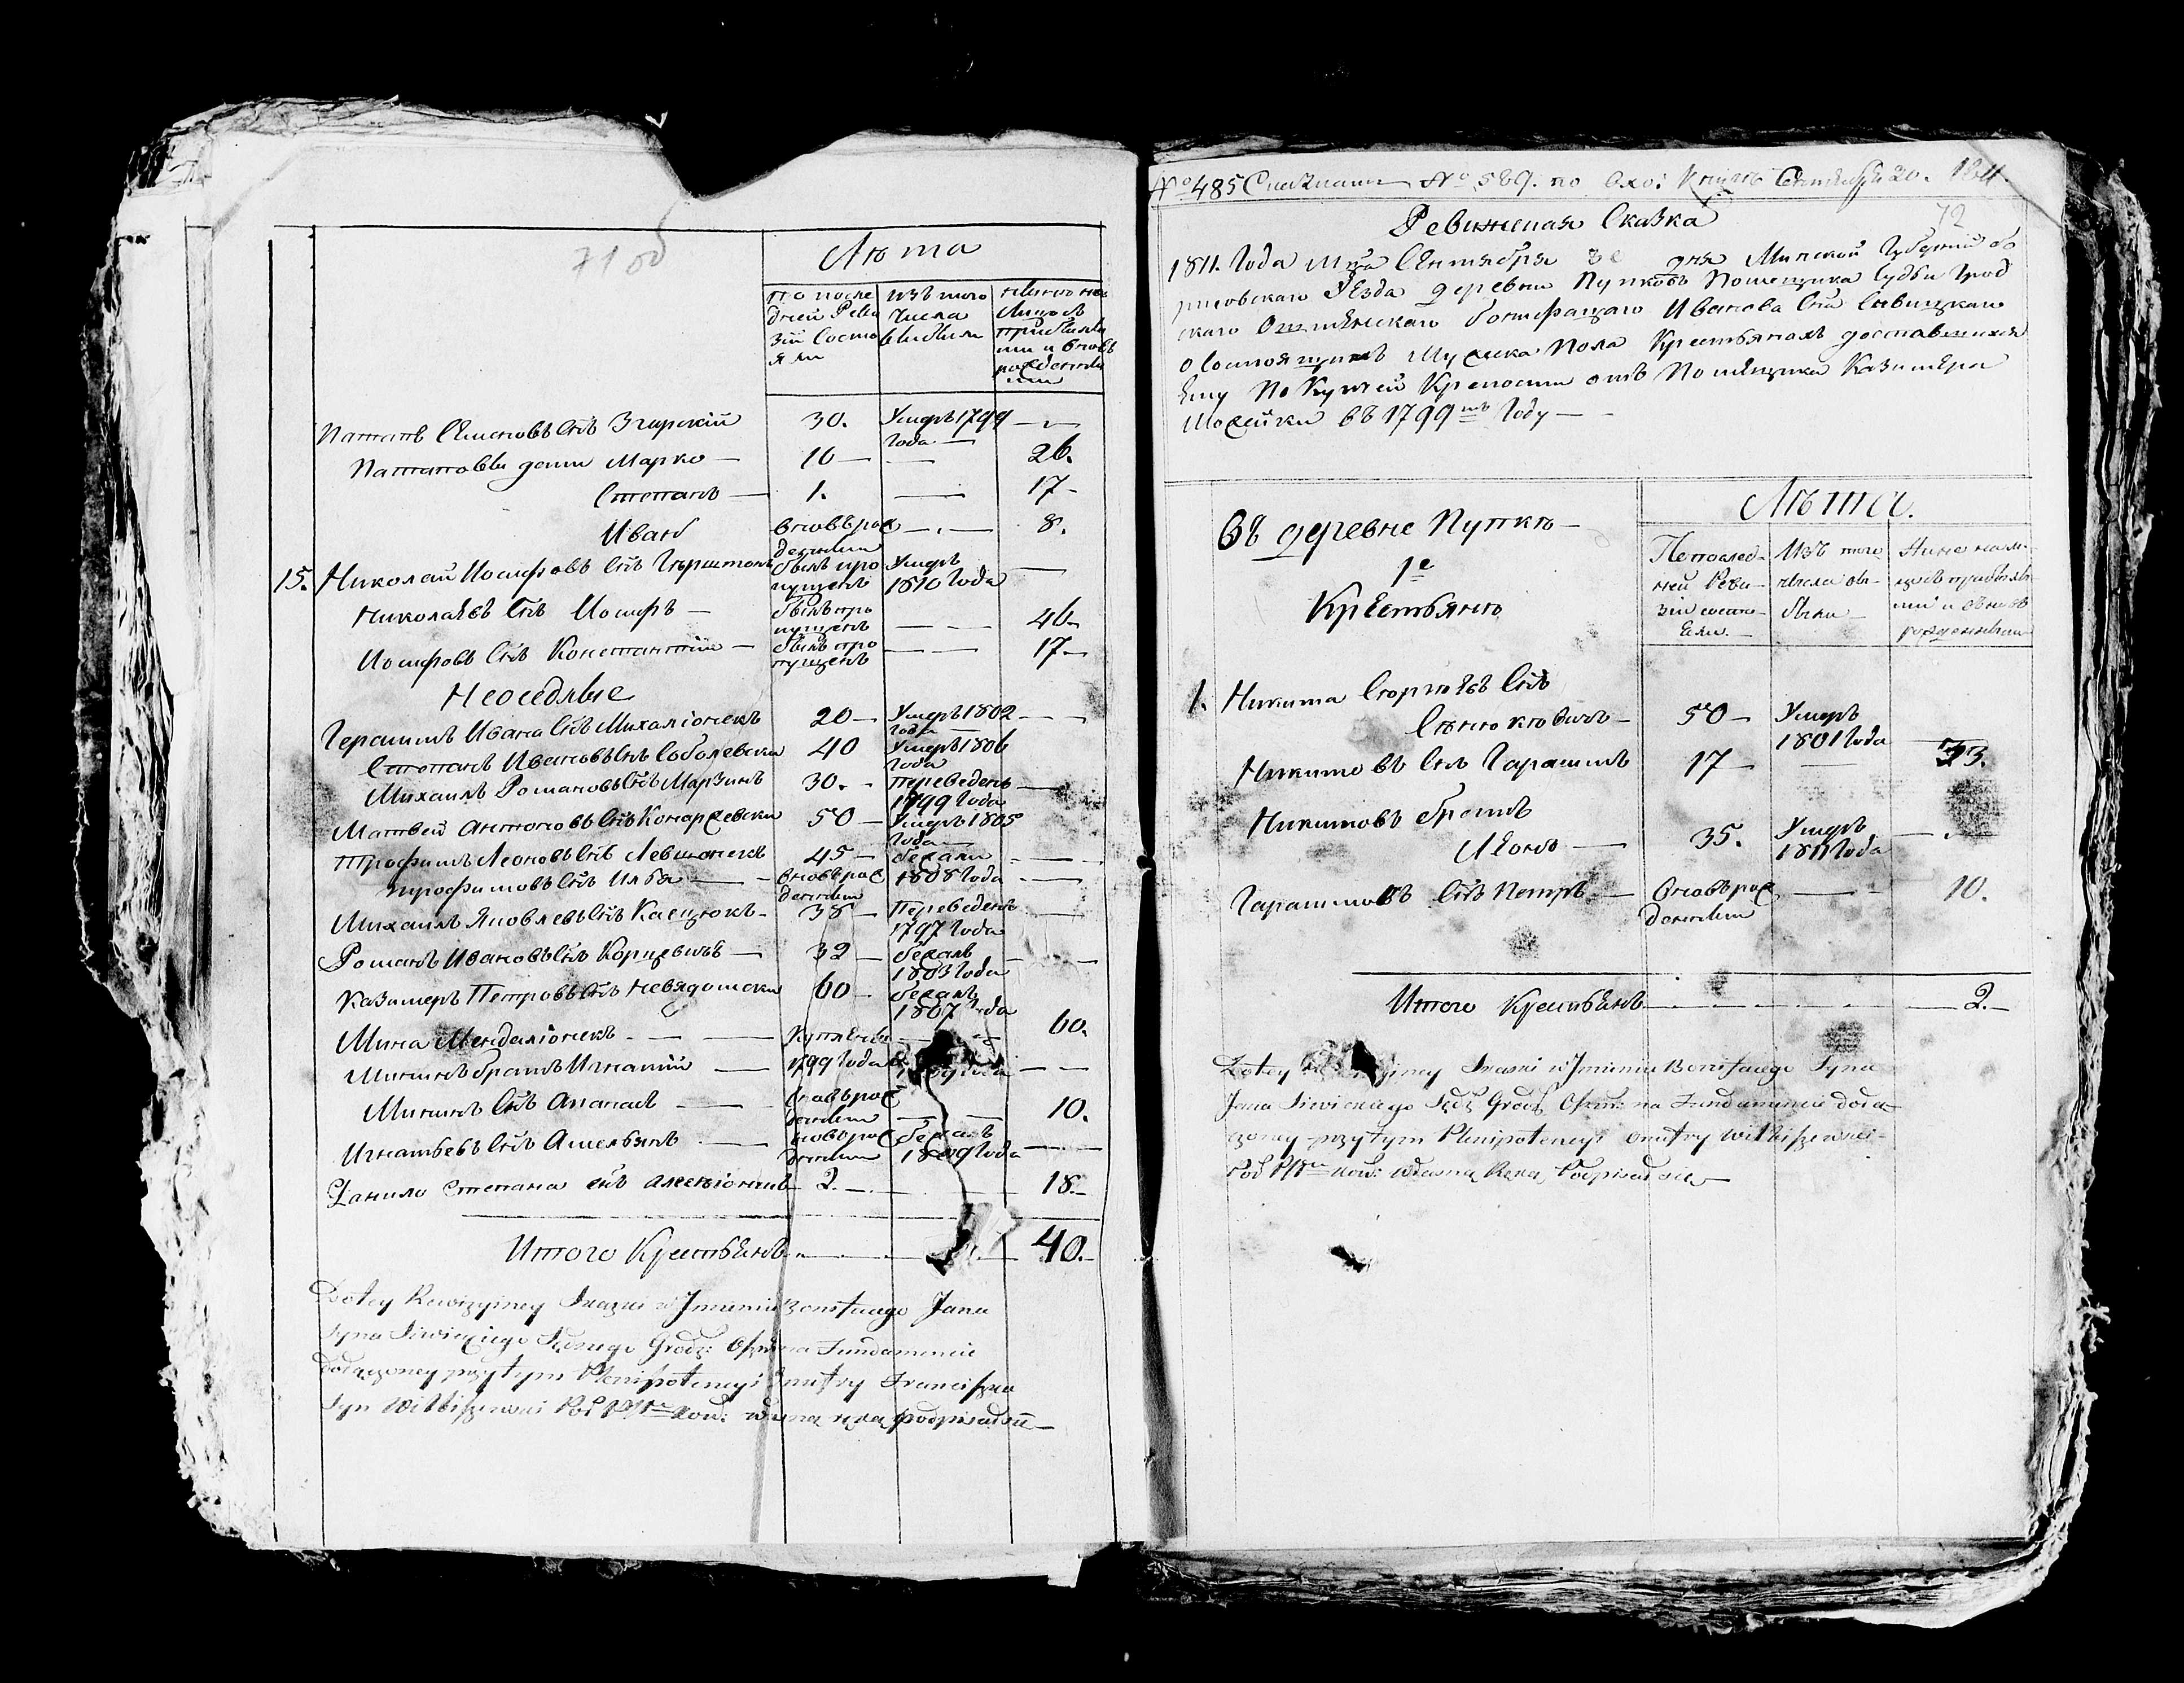 71 об
Лѣта
по после
дней Реви
зіи Состо
яли
изъ того
Числа
выбыли
нынѣ на
лицо съ
прибылы
ми и вновь
рожденны
ми
Патапъ Семеновъ Снъ Згирскій 30. Умеръ 1799 Года —
Патаповы дети Марко — 10 — — 26.
Степанъ — 1. — 17 -
Иванъ вновь рож денный — 8.
15. Николай Иосифовъ Снъ былъ про пущенъ Умеръ 1810 Года —
Николаевъ Снъ Иосифъ — былъ про пущенъ — — 46 -
Иосифовъ Снъ Константый — былъ про пущенъ — — 17 -
Неоседлые
Герасимъ Ивана Снъ Михаліонекъ 20 — Умеръ 1802 Года — —
Степанъ Ивановъ Снъ Соболевски 40 Умеръ 1806 Года
Михаилъ Романовъ Снъ Марзинъ 30. - переведенъ 1799 Года —
Матвей Антоновъ Снъ Комаржевски 50 — Умеръ 1805 Года
Трофимъ Леоновъ Снъ Левшонекъ 45 — бежали 1808 Года — —
Трофимовъ Снъ Илья — вновь рож денный —
Михаилъ Яковлевъ Снъ Касцюкъ - 38 — Переведенъ 1797 Года —
Романъ Ивановъ Снъ Корцевичъ — 32 — бежалъ 1803 Года —
Казимеръ Петровъ Снъ Невядомски 60 — бежалъ 1807 Года
Мина Мендаліонекъ — — Купленъ 1799 Года — 60.
Мининъ братъ Игнатій — — —
Мининъ Снъ Апанасъ — вновь рож денный — — 10.
Игнатьевъ Снъ Амельянъ — новорож денный бежалъ 1809 Года —
Данило Степана снъ 2. — — 18. -
Итого Крестьянъ — 40. -
Do tey Rewizyiney Skazki w Imieniu Bonifacego Jana
Syna Siwickiego Sędziego Grodz: Oszm: na Fundamencie
dołączoney przy tym Plenipotencyi Dmitry Franciszka
Syn Witkiszewski własną ręką podpisał się —
№ 485 № 589. по Вхо: Книгѣ Сентября 20. 1811.
72
Ревижская Сказка
1811. Года Мца Сентября дня Минской Губерніи Бо
рисовскаго Уезда деревни Пупковъ Помещика Судьи Грод
скаго Ошмянскаго Бонифацаго Иванова Сна Сивицкаго
о Состоящихъ мужеска Пола Крестьянахъ доставшихся
Ему По Купчей Крепости отъ Помещика Казимера
Можейки въ 1799мъ Году —
Въ деревне Пупки —
1е
Крестьяне
Лѣта.
По послед-
ней Реви-
зіи состо-
яли. —
Изъ того
числа вы-
были —
Нине на ли-
цо съ прибылы
ми и вновь
рожденными
1. Никита Снъ
50 — Умеръ 1801 Года —
Никитовъ Снъ Гарасимъ 17 — — 33.
Никитовъ братъ
Леонъ — 35. Умеръ 1811 Года —
Гарасимовъ Снъ Петръ — вновь рож денный — 10.
Итого Крестьянъ — 2. -
Do tey Skazki w Imieniu Bonifacego Syna
Jana Siwickiego Sędz: Grodz: Oszm: na Fundamencie dołą-
czoney przy tym Plenipotencyi Dmitry Witkiszewski
własną Ręką Podpisał się —